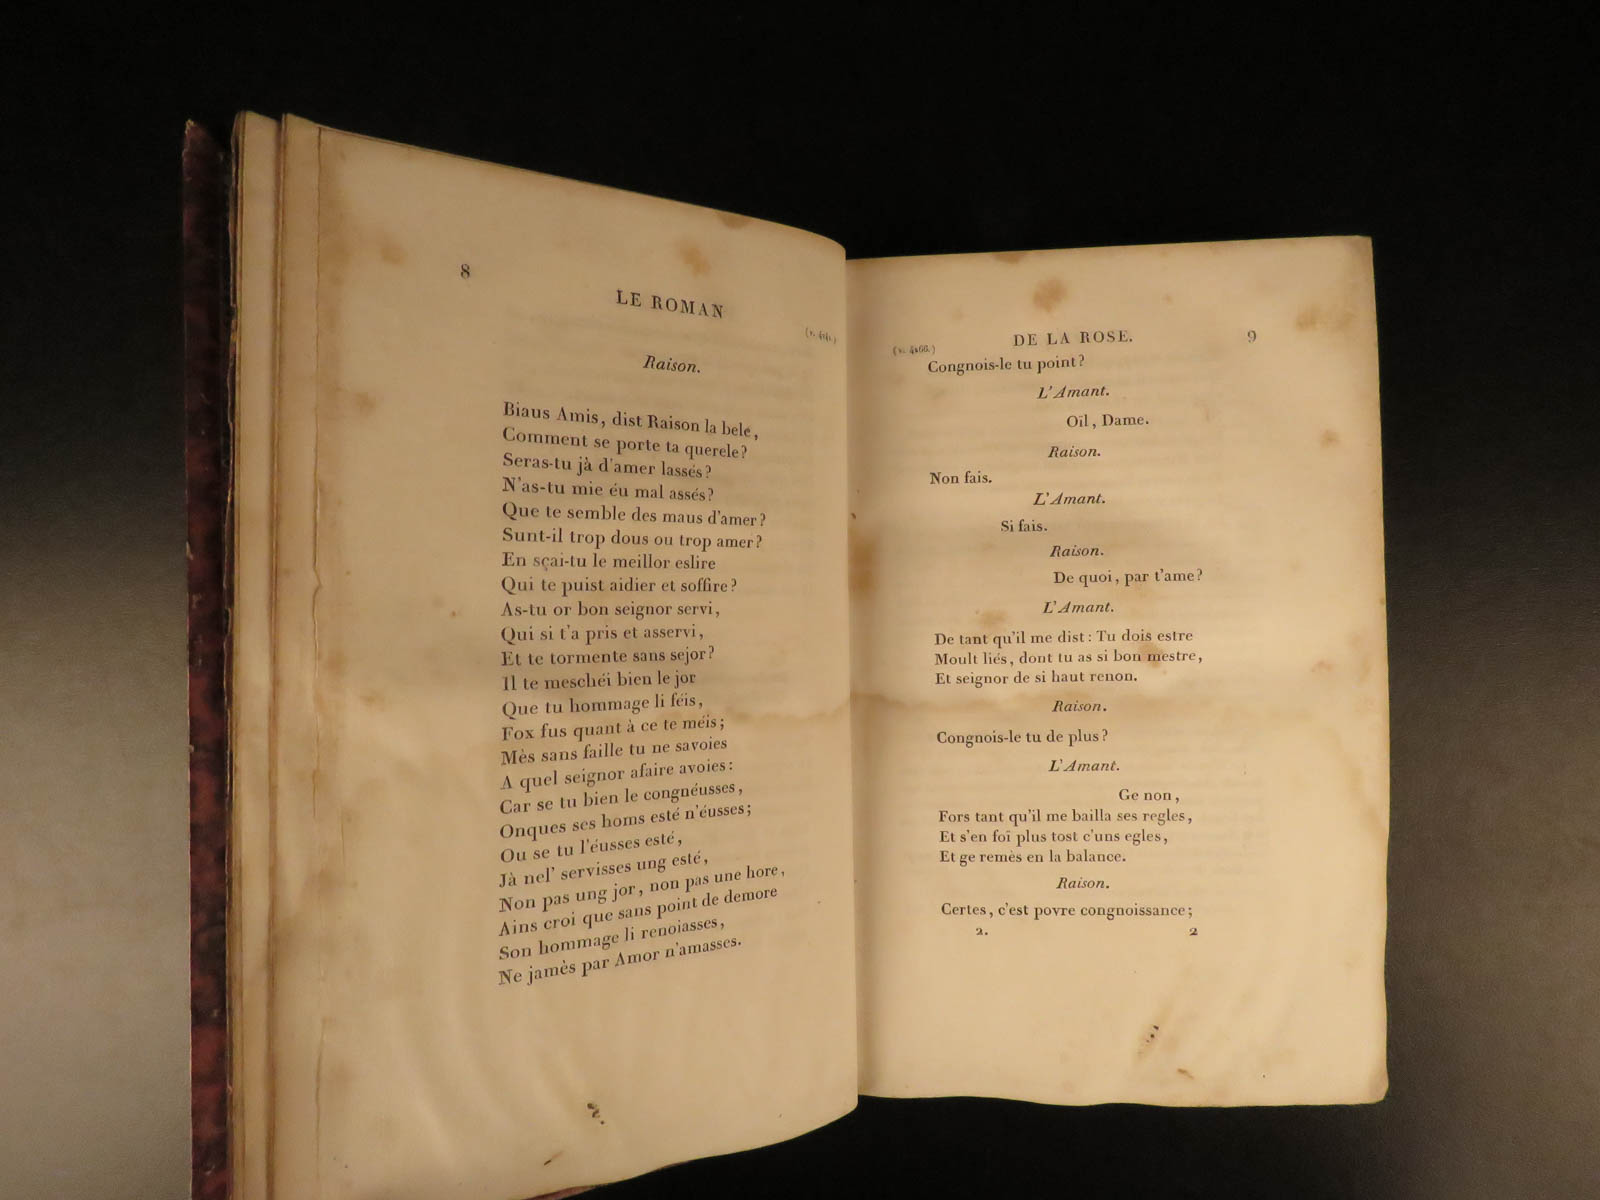 8
LE ROMAN
(v. 4241.)
Raison.
Biaus Amis, dist Raison la bele,
Comment se porte ta querele?
Seras-tu jà d'amer lassés?
N'as-tu mie éu mal assés?
Que te semble des maus d'amer?
Sunt-il trop dous ou trop amer?
En sçai-tu le meillor eslire
Qui te puist aidier et soffire?
As-tu or bon seignor servi,
Qui si t'a pris et asservi,
Et te tormente sans sejor?
Il te meschéi bien le jor
Que tu hommage li féis,
Fox fus quant à ce te méis;
Mès sans faille tu ne savoies
A quel seignor afaire avoies:
Car se tu bien le congnéusses,
Onques ses homs esté n'éusses;
Ou se tu l'éusses esté,
Jà nel' servisses ung esté,
Non pas ung jor, non pas une hore,
Ains croi que sans point de demore
Son hommage li renoiasses,
Ne jamès par Amor n'amasses.
(v. 4266.)
DE LA ROSE.
9
Congnois-le tu point?
L'Amant.
Oïl, Dame.
Raison.
Non fais.
L'Amant.
Si fais.
Raison.
De quoi, par t'ame?
L'Amant.
De tant qu'il me dist: Tu dois estre
Moult liés, dont tu as si bon mestre,
Et seignor de si haut renon.
Raison.
Congnois-le tu de plus?
L'Amant.
Ge non,
Fors tant qu'il me bailla ses regles,
Et s'en foï plus tost c'uns egles,
Et ge remès en la balance.
Raison.
Certes, c'est povre congnoissance;
2. 2